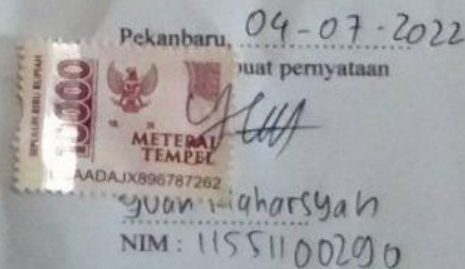 Pekanbaru, 04-07-2022
uat pernyataan
SEPULUH RIBU RUPIAH
10000
METERAI
TEMPEL
AADAJX896787262
Yuan Maharsyah
NIM : 11551100290